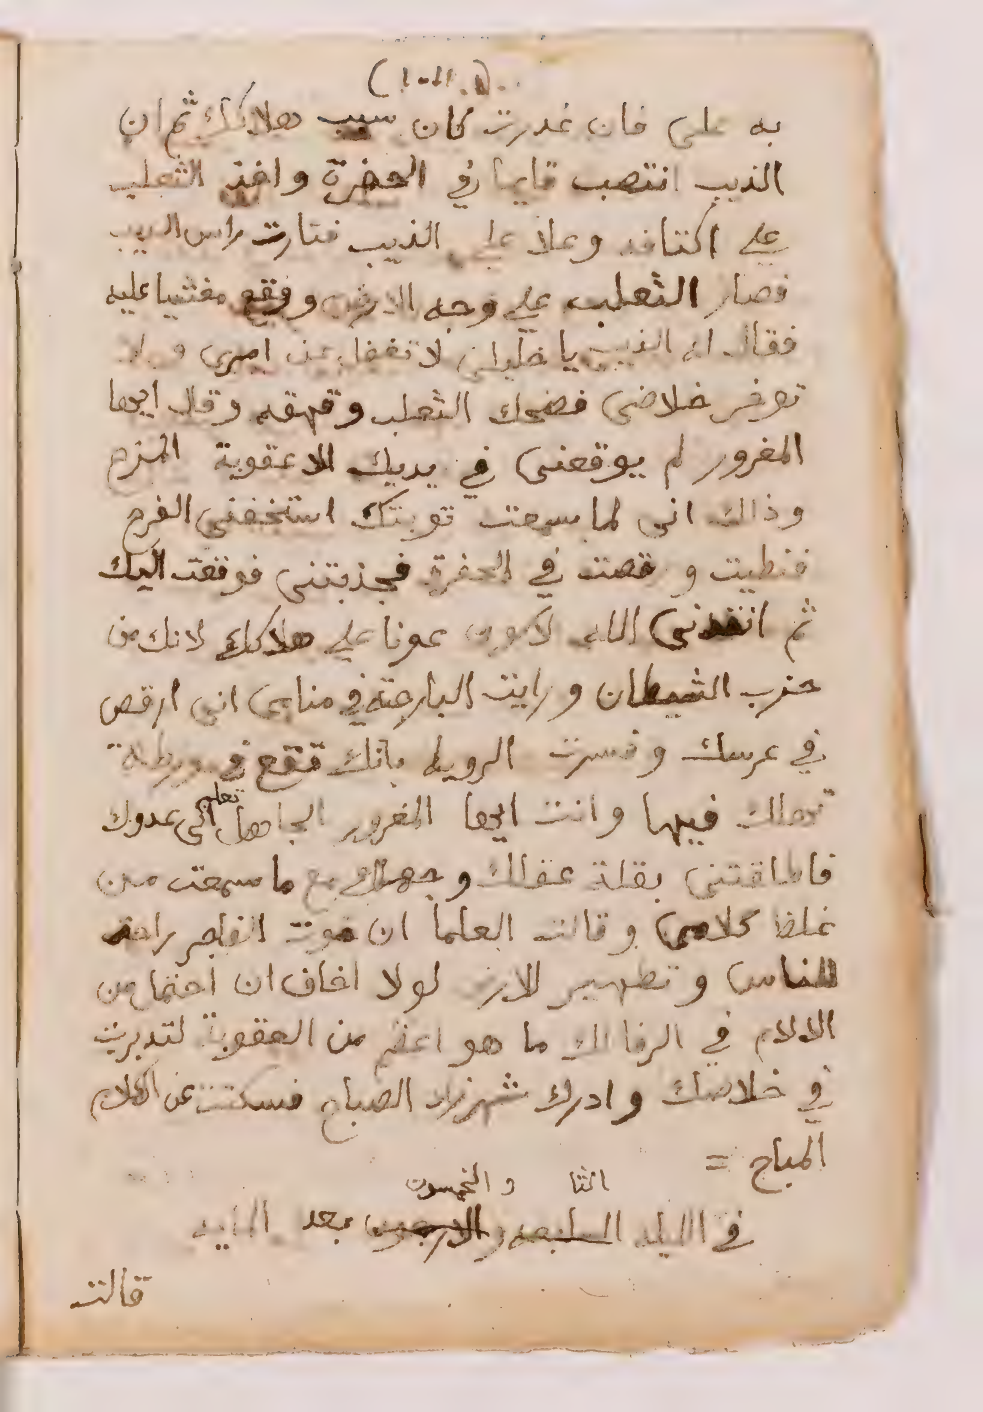 به على فان غدرت كان سبب هلاكك ثم ان
الذيب انتصب قايما في الحفرة واخذ الثعلب
علي اكتافه وعلا علي الذيب فتارت راس الذيب
فصار الثعلب علي وجه الارض ووقع مغشيا عليه
فقال له الذيب يا خليلي لا تغفل عن امري ولا
توخر خلاصي فضحك الثعلب وقهقه وقال ايها
المغرور لم يوقعني في يديك الا عقوبة المزح
وذالك اني لما سمعت توبتك استخفني الفرح
فنطيت ورقصت في الحفرة فجذبتني فوقعت اليك
ثم انقذني الله لاكون عونا علي هلاكك لانك من
حزب الشيطان ورايت البارحة في منامي اني ارقص
في عرسك وفسرت الرويا بانك تقع في ورطة
تهلك فيها وانت ايها المغرور الجاهل تعلم اني عدوك
فاطلقتني بقلة عقلك وجهلك مع ما سمعت من
غلظ كلامي وقالت العلما ان موت الفاجر راحة
للناس وتطهير للارض لولا اخاف ان احتمل من
الالام في الوفا لك ما هو اعظم من العقوبة لتدبرت
في خلاصك وادرك شهرزاد الصباح فسكتت عن الكلام
المباح =
الثا والخمسون
في الليلة السابعه والاربعون بعد المايه
قالت